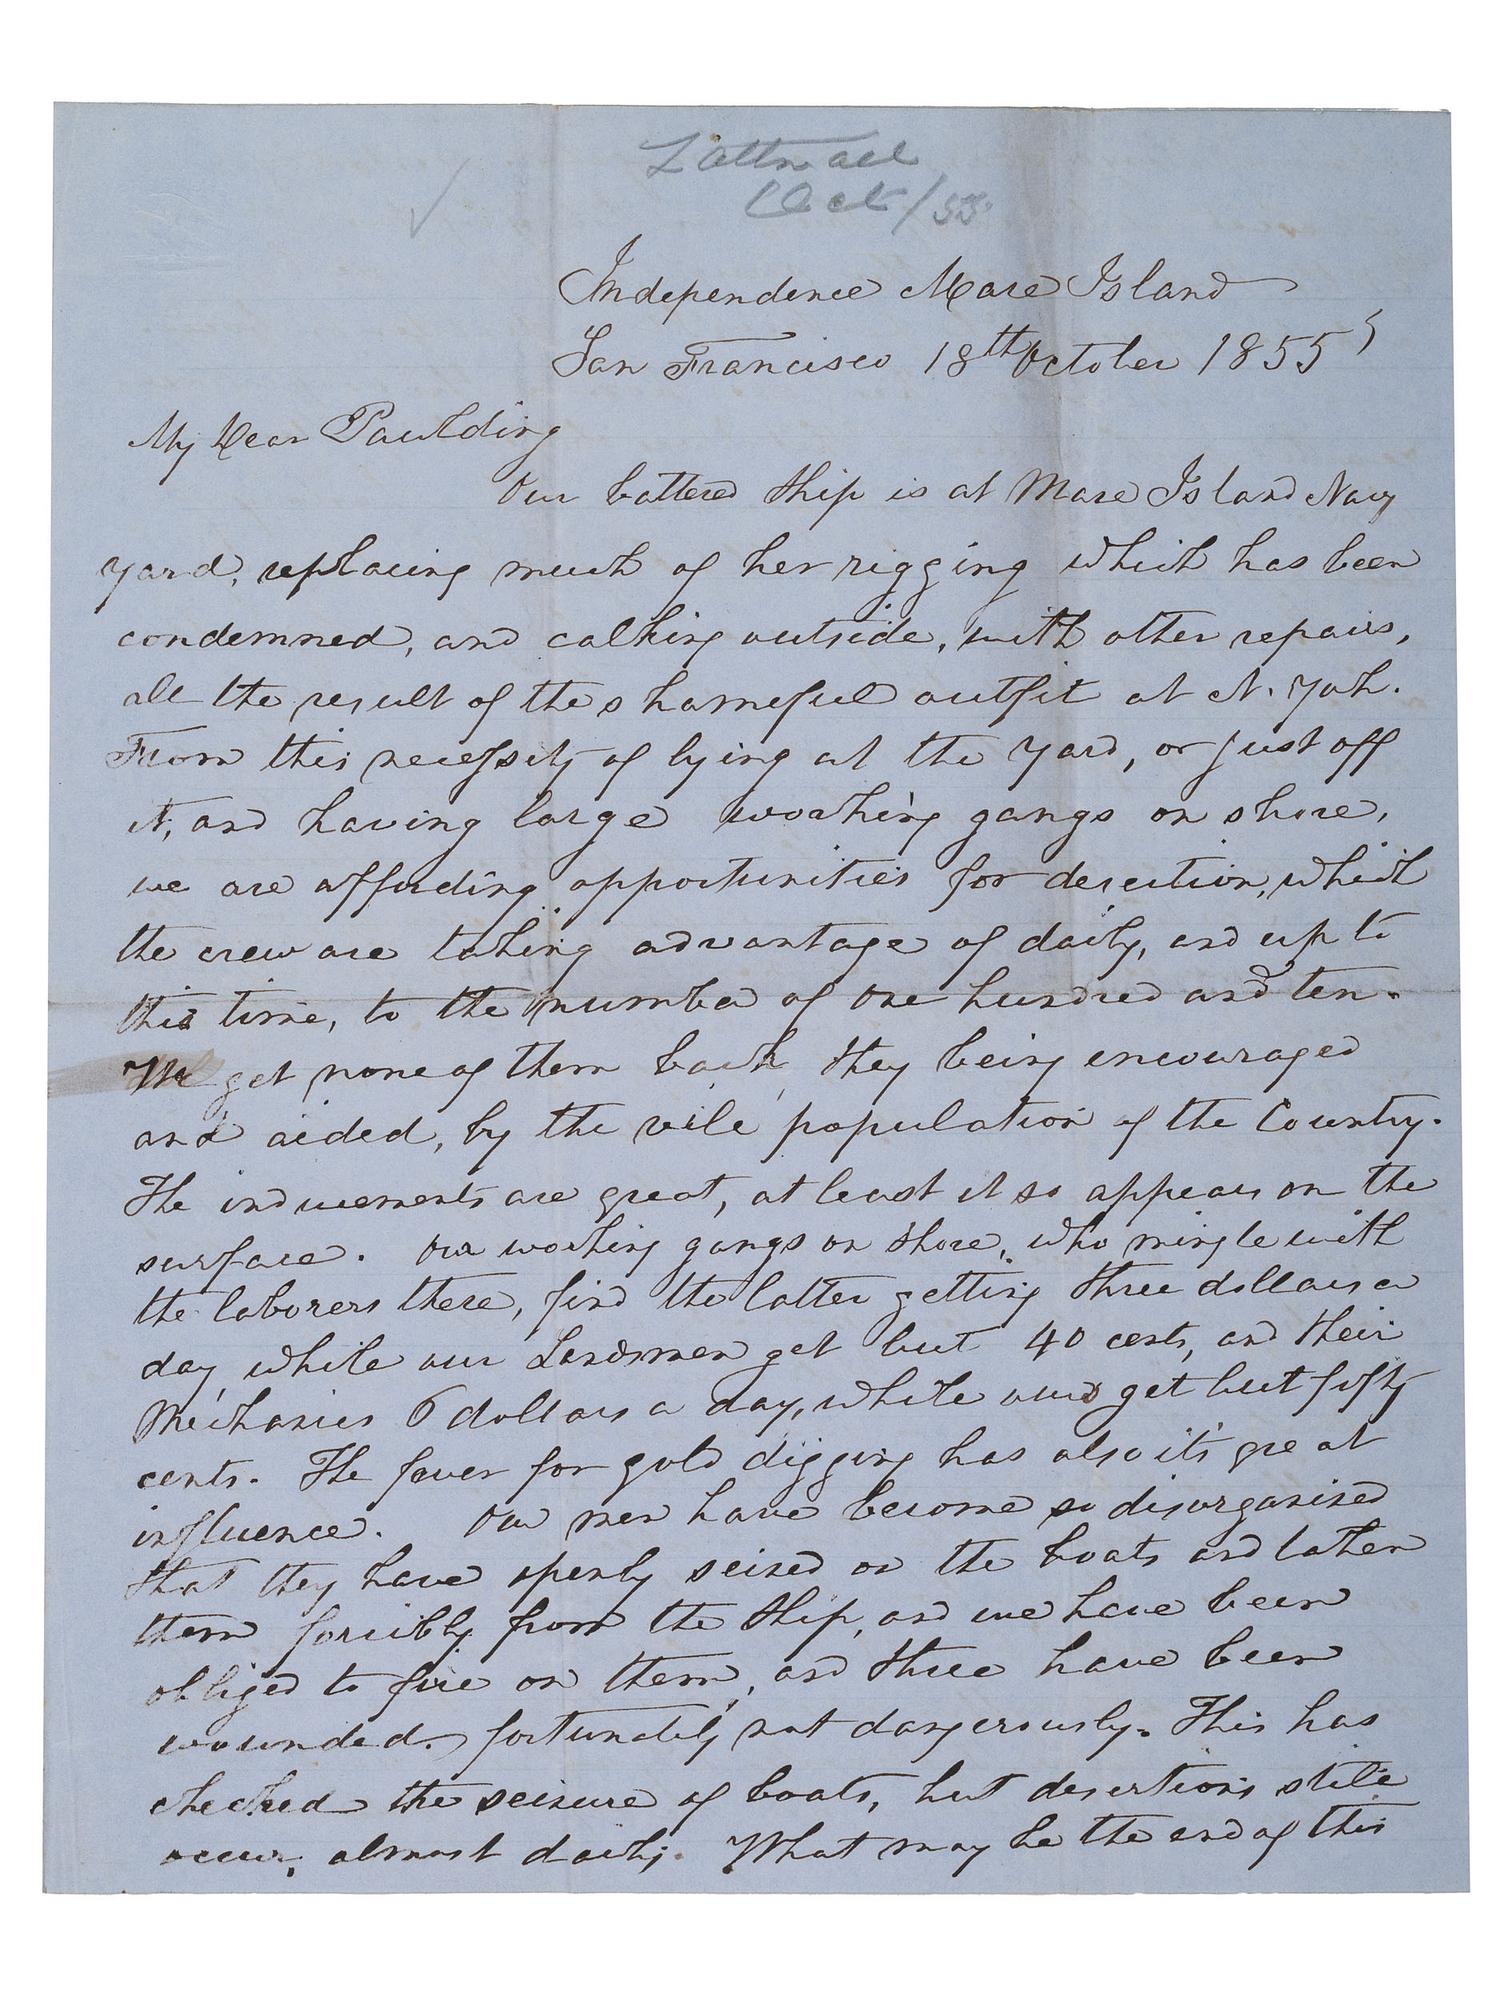 Oct/55.
Independence Mare Island
San Francisco 18th October 1855
My Dear Paulding
Our battered ship is at Mare Island Navy
yard, replacing much of her rigging which has been
condemned, and calking outside, with other repairs,
all the result of the shameful outfit at N. York.
From this necessity of lying at the yard, or just off
it, and having large working gangs on shore,
we are affording opportunities for desertion, which
the crew are taking advantage of daily, and up to
this time, to the number of one hundred and ten.
We get none of them back, they being encouraged
and aided, by the vile population of the Country.
The inducements are great, at least it so appears on the
surface. Our working gangs on shore, who mingle with
the laborers there, find the latter getting three dollars a
day, while our Landsmen get but 40 cents, and their
Mechanics 6 dollars a day, while ours get but fifty
cents. The fever for gold digging has also it's great
influence. Our men have become so disorganised
that they have openly seized on the boats and taken
them forcibly from the ship, and we have been
obliged to fire on them, and three have been
wounded. fortunately not dangerously. This has
checked the seizure of boats, but desertions still
occur, almost daily. What may be the end of this